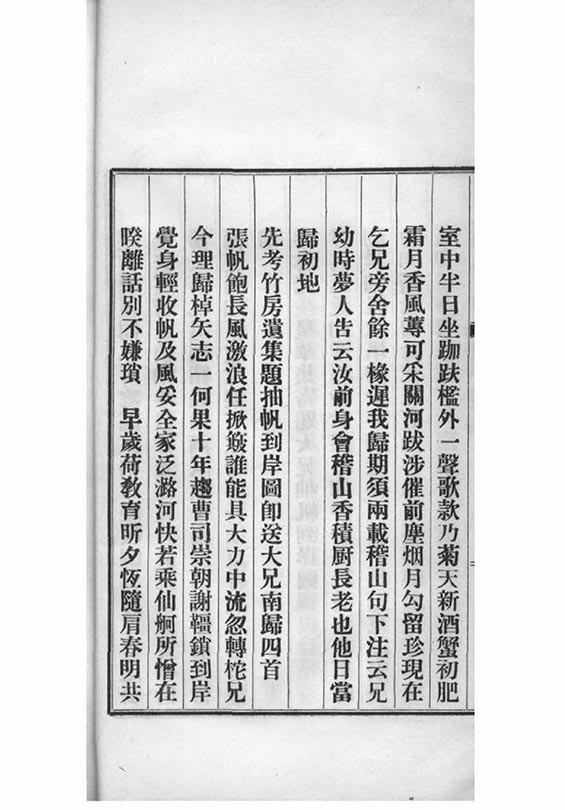 室中半日坐跏趺檻外一聲歌款乃菊天新酒蟹初肥
霜月香風蓴可采關河跋涉催前塵烟月勾留珍現在
乞兄旁舍餘一椽遲我歸期須兩載稽山句下注云兄
幼時夢人告云汝前身會稽山香積厨長老也他日當
歸初地
先考竹房遺集題抽帆到岸圖卽送大兄南歸四首
張帆飽長風激浪任掀簸誰能具大力中流忽轉柁兄
今理歸棹矢志一何果十年趨曹司崇朝謝韁鎖到岸
覺身輕收帆及風妥全家泛潞河快若乘仙舸所憎在
暌離話別不嫌瑣　早歲荷敎育昕夕恆隨肩春明共